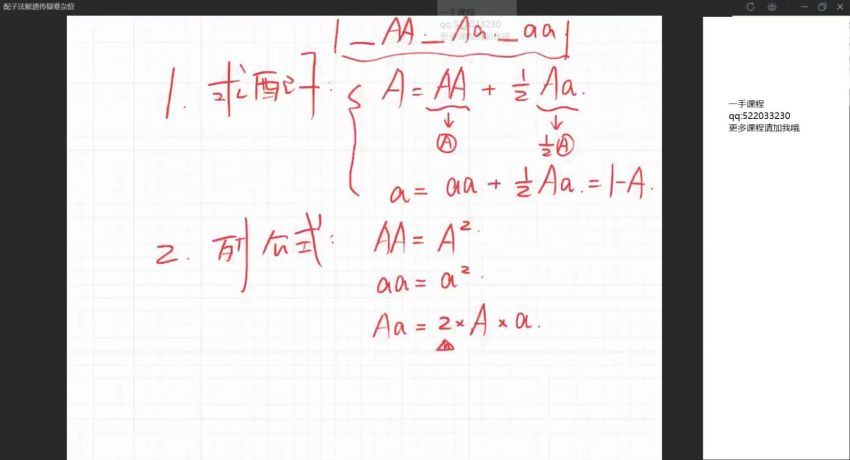 配子法解遗传疑难杂症
一手课程
qq:522033230
更多课程请加我哦
_AA _Aa _aa
1. 求配子: A = AA + 1/2 Aa.
↓ ↓
Ⓐ 1/2Ⓐ
a = aa + 1/2 Aa. = 1-A.
2. 列式: AA = A².
aa = a².
Aa = 2 × A × a.
一手课程
qq:522033230
更多课程请加我哦